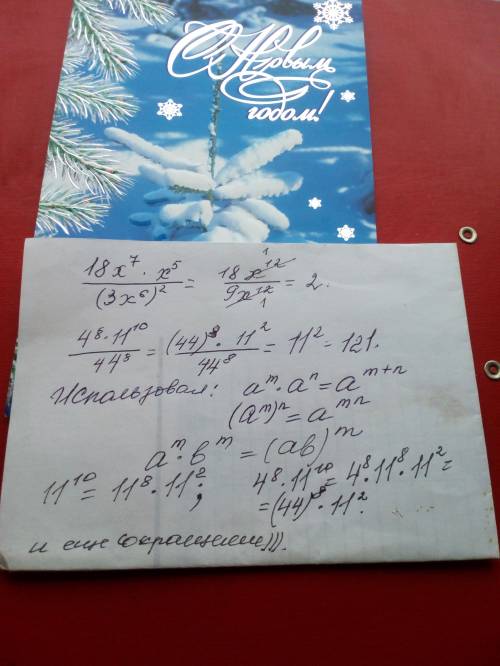 С Новым
годом!
18x⁷ · x⁵ / (3x⁶)² = 18x¹² / 9x¹² = 2.
4⁸ · 11¹⁰ / 44⁸ = (44)⁸ · 11² / 44⁸ = 11² = 121.
Использовал: aᵐ · aⁿ = aᵐ⁺ⁿ
(aᵐ)ⁿ = aᵐⁿ
aᵐ · bᵐ = (ab)ᵐ
11¹⁰ = 11⁸ · 11²; 4⁸ · 11¹⁰ = 4⁸ · 11⁸ · 11² =
= (44)⁸ · 11².
и еще сокращение))).